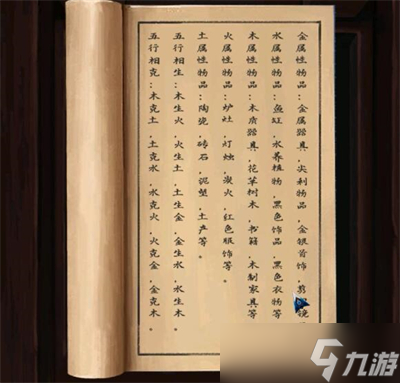 金属性物品:金属器具,尖利物品,金银首饰,剪
水属性物品:鱼缸,水养植物,黑色饰品,黑色衣物等
木属性物品:木质器具,花草树木,书籍,木制家具等
火属性物品:炉灶,灯烛,火,红色服饰等。
土属性物品:陶瓷,砖石,泥塑,土产等。
五行相生:木生火,火生土,土生金,金生水,水生木。
五行相克:木克土,土克水,水克火,火克金,金克木。
九游